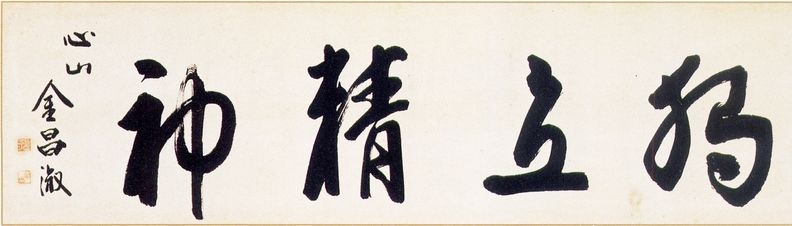 獨立精神
心山
金昌淑